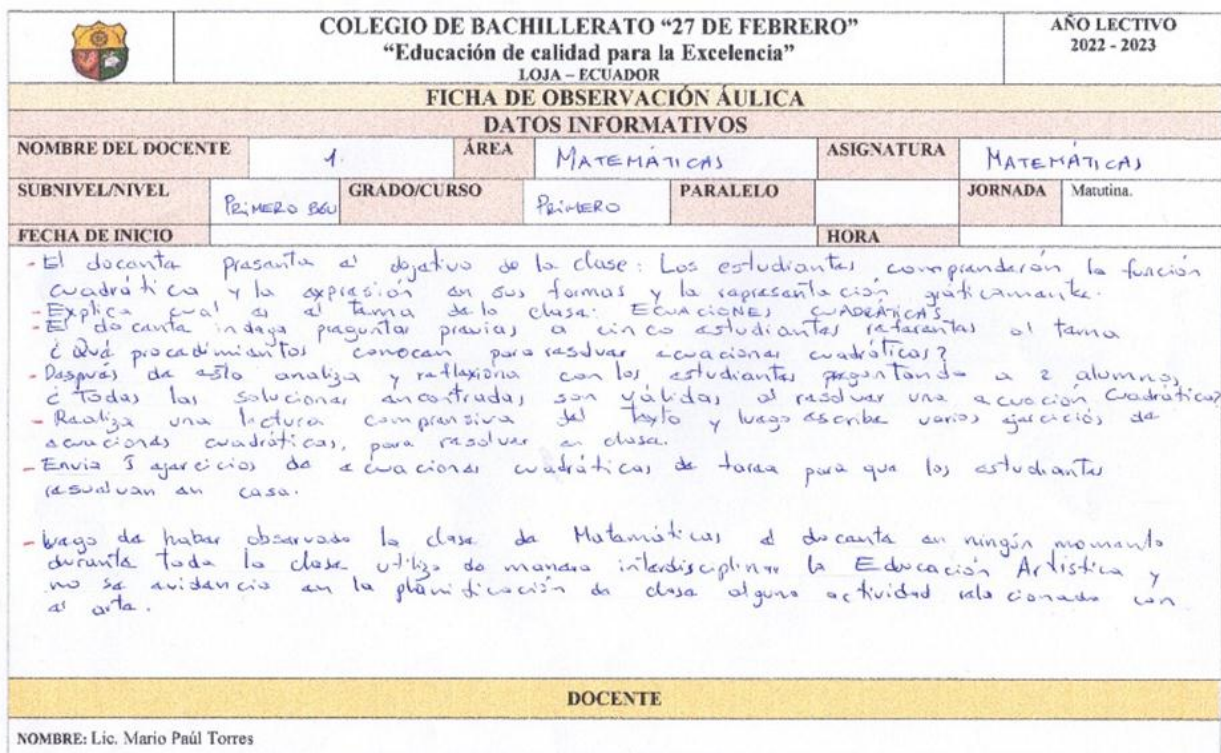 COLEGIO DE BACHILLERATO “27 DE FEBRERO”
“Educación de calidad para la Excelencia”
LOJA – ECUADOR
AÑO LECTIVO
2022 - 2023
FICHA DE OBSERVACIÓN ÁULICA
DATOS INFORMATIVOS
NOMBRE DEL DOCENTE 1. ÁREA MATEMÁTICAS ASIGNATURA MATEMÁTICAS
SUBNIVEL/NIVEL PRIMERO BGU GRADO/CURSO PRIMERO PARALELO JORNADA Matutina.
FECHA DE INICIO HORA
- El docente presenta el objetivo de la clase: Los estudiantes comprenderán la función
cuadrática y la expresión en sus formas y la representación gráficamente.
- Explica cual es el tema de la clase: ECUACIONES CUADRÁTICAS
- El docente indaga preguntas previas a cinco estudiantes referentes al tema
¿Qué procedimientos conocen para resolver ecuaciones cuadráticas?
- Después de esto analiza y reflexiona con los estudiantes preguntando a 2 alumnos
¿Todas las soluciones encontradas son válidas al resolver una ecuación Cuadrática?
- Realiza una lectura comprensiva del texto y luego escribe varios ejercicios de
ecuaciones cuadráticas, para resolver en clase.
- Envia 5 ejercicios de ecuaciones cuadráticas de tarea para que los estudiantes
resuelvan en casa.
- Luego de haber observado la clase de Matemáticas el docente en ningún momento
durante toda la clase utilizo de manera interdisciplinar la Educación Artística y
no se evidencio en la planificación de clase alguna actividad relacionada con
el arte.
DOCENTE
NOMBRE: Lic. Mario Paúl Torres